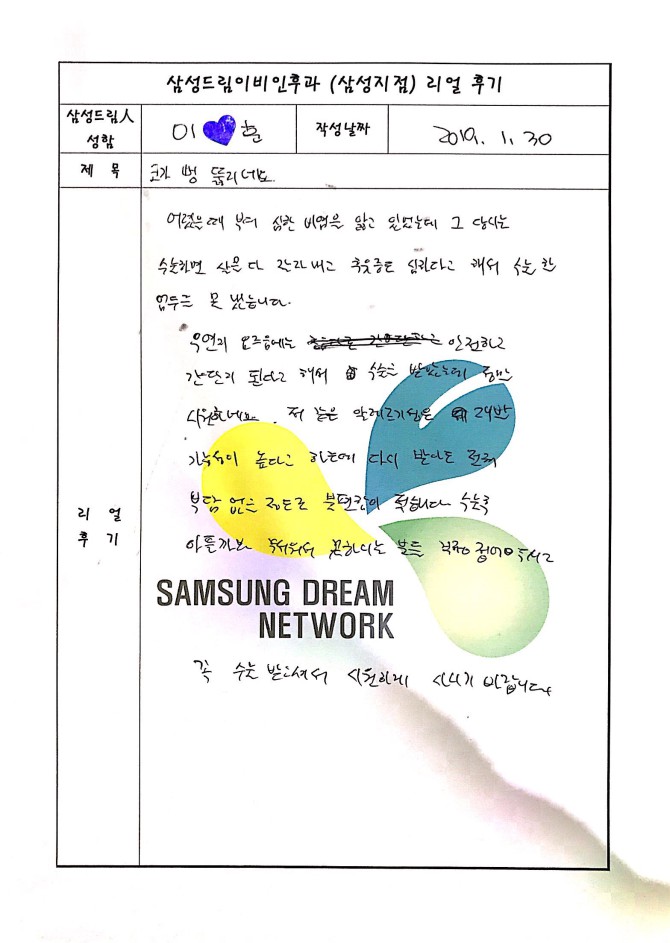 삼성드림이비인후과 (삼성지점) 리얼 후기
삼성드림人 성함
이 훈
작성날짜
2019. 1. 30
제 목
코가 뻥 뚫리네요.
어렸을때 부터 심한 비염을 앓고 있었는데 그 당시는
수술하면 살을 다 잘라내고 후유증도 심하다고 해서 수술 한
엄두를 못 냈습니다.
우연히 요즈음에는 안전하고
간단히 된다고 해서 수술을 받았는데 정말
시원하네요. 저 같은 알레르기성은 재발
가능성이 높다고 하는데 다시 받아도 전혀
부담 없을 정도로 불편함이 적습니다 수술후
아플까봐 무서워서 못하시는 분들 걱정 접어두시고
리 얼
후 기
SAMSUNG DREAM
NETWORK
꼭 수술 받으셔서 시원하게 사시기 바랍니다